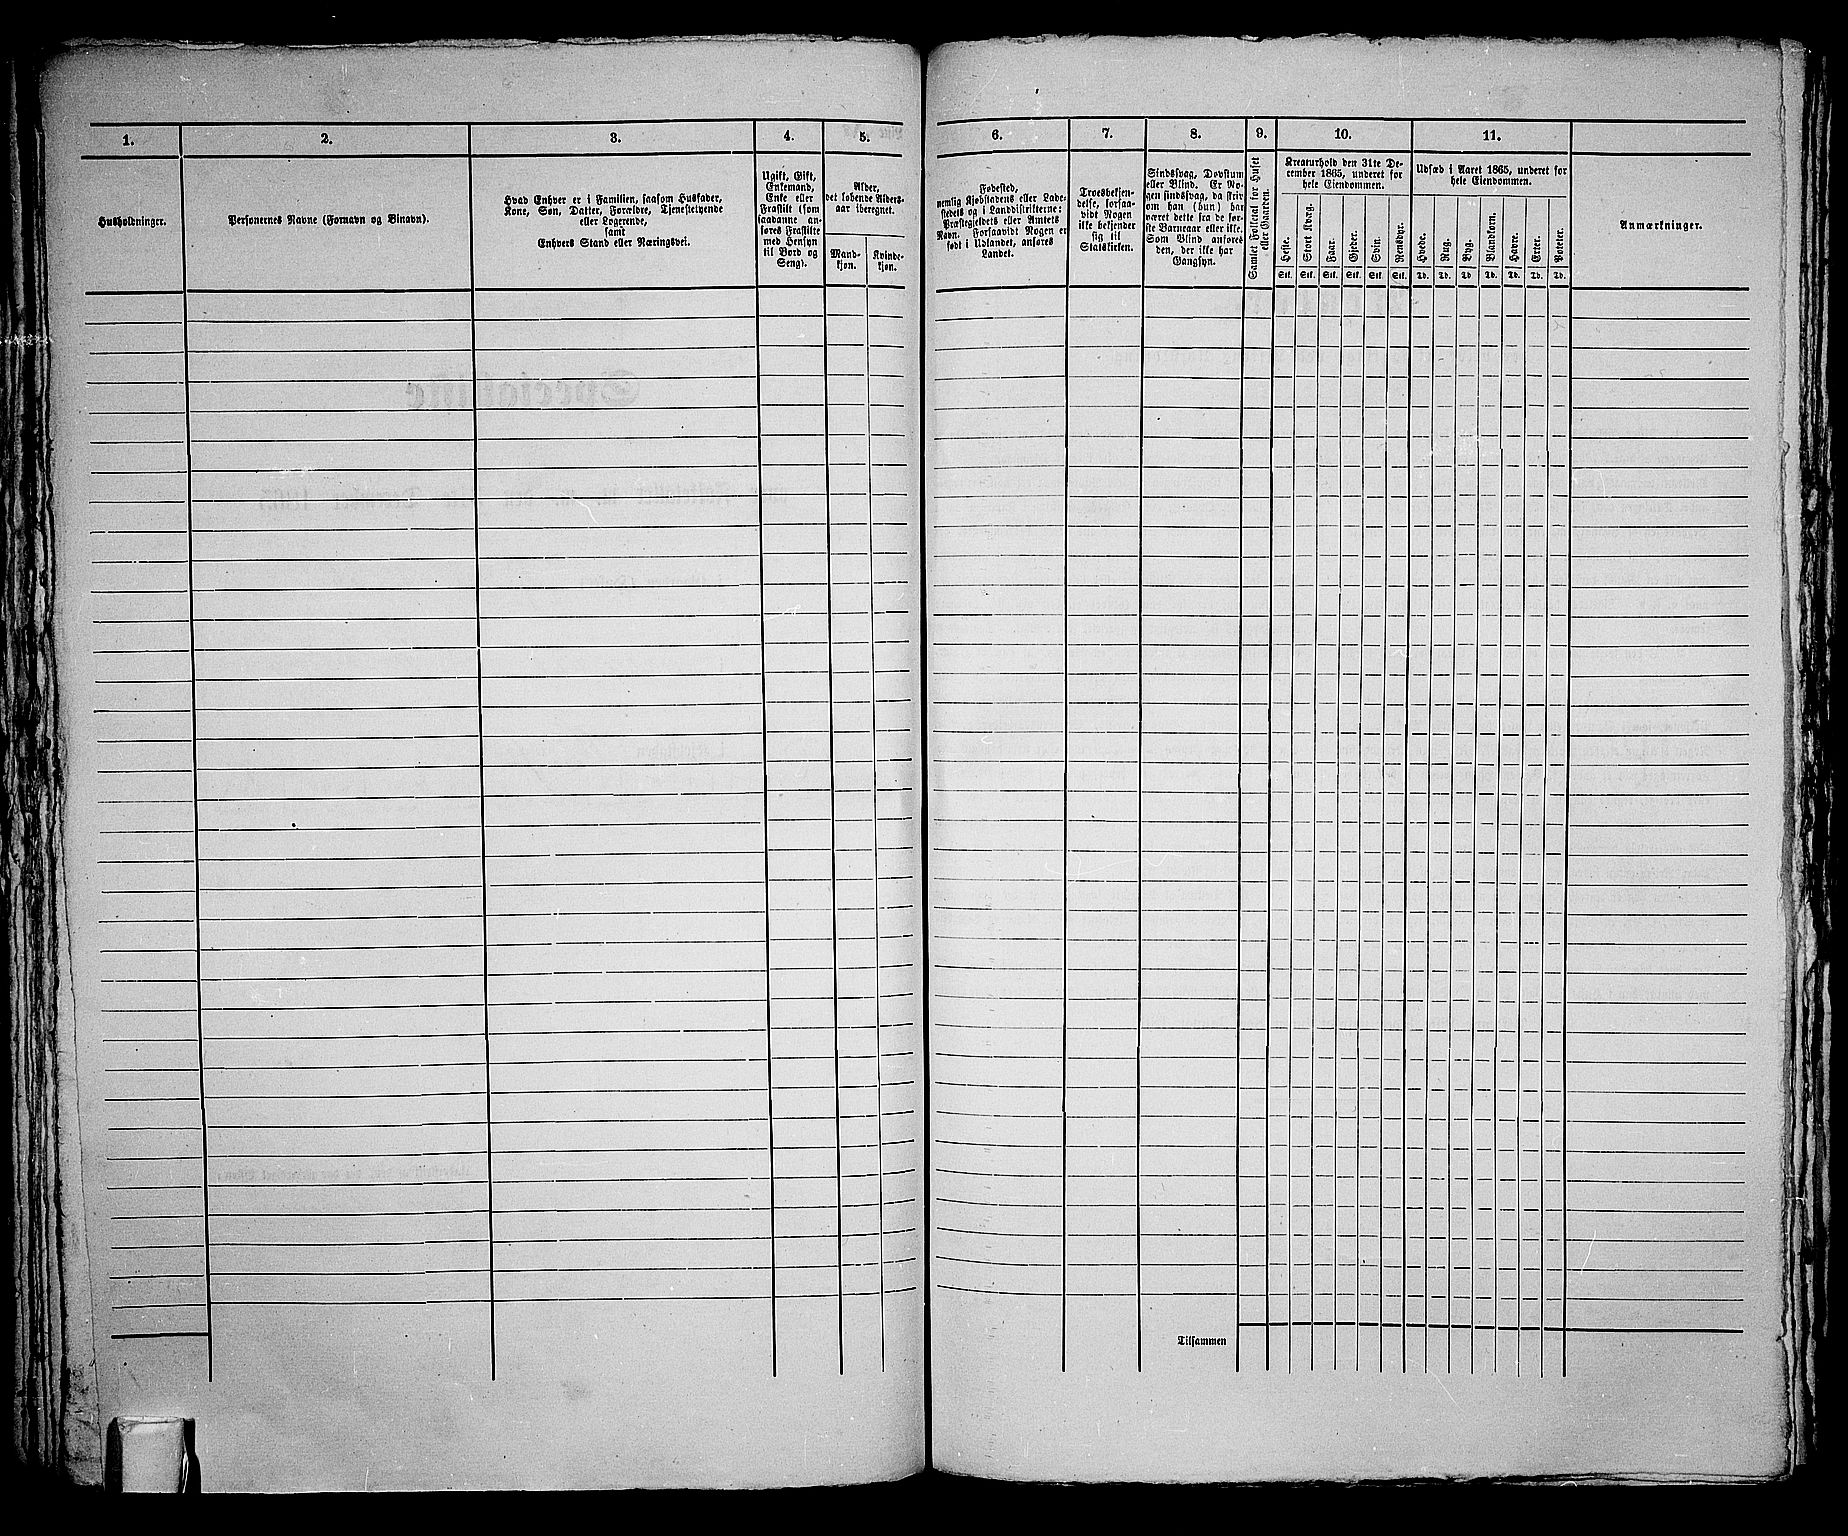 1.
2.
3.
4.
5.
Husholdninger.
Personernes Navne (Fornavn og Binavn).
Hvad Enhver er i Familien, saasom Husfader,
Kone, Søn, Datter, Forældre, Tjenestetyende
eller Logerende,
samt
Enhvers Stand eller Næringsvei.
Ugift, Gift,
Enkemand,
Enke eller
Fraskilt (som
saadanne an-
føres Fraskilte
med Hensyn
til Bord og
Seng).
Alder,
det løbende Alders-
aar iberegnet.
Mand-
kjøn.
Kvinde-
kjøn.
6.
7.
8.
9.
10.
11.
Fødested,
nemlig Kjøbstadens eller Lade-
stedets og i Landdistrikterne:
Præstegjeldets eller Amtets
Navn. Forsaavidt Nogen er
født i Udlandet, anføres
Landet.
Troesbekjen-
delse, forsaa-
vidt Nogen
ikke bekjender
sig til
Statskirken.
Sindssvag, Døvstum
eller Blind. Er No-
gen sindssvag, da skriv
om han (hun) har
været dette fra de før-
ste Barneaar eller ikke.
Som Blind anføres
den, der ikke har
Gangsyn.
Samlet Folketal for Huset
eller Gaarden.
Kreaturhold den 31te De-
cember 1865, underet for
hele Eiendommen.
Heste.
Stort Kvæg.
Faar.
Gjeder.
Svin.
Rensdyr.
Stk. Stk. Stk. Stk. Stk. Stk.
Udsæd i Aaret 1865, underet for
hele Eiendommen.
Hvede.
Rug.
Byg.
Blandkorn.
Havre.
Erter.
Poteter.
Td. Td. Td. Td. Td. Td. Td.
Anmærkninger.
Tilsammen